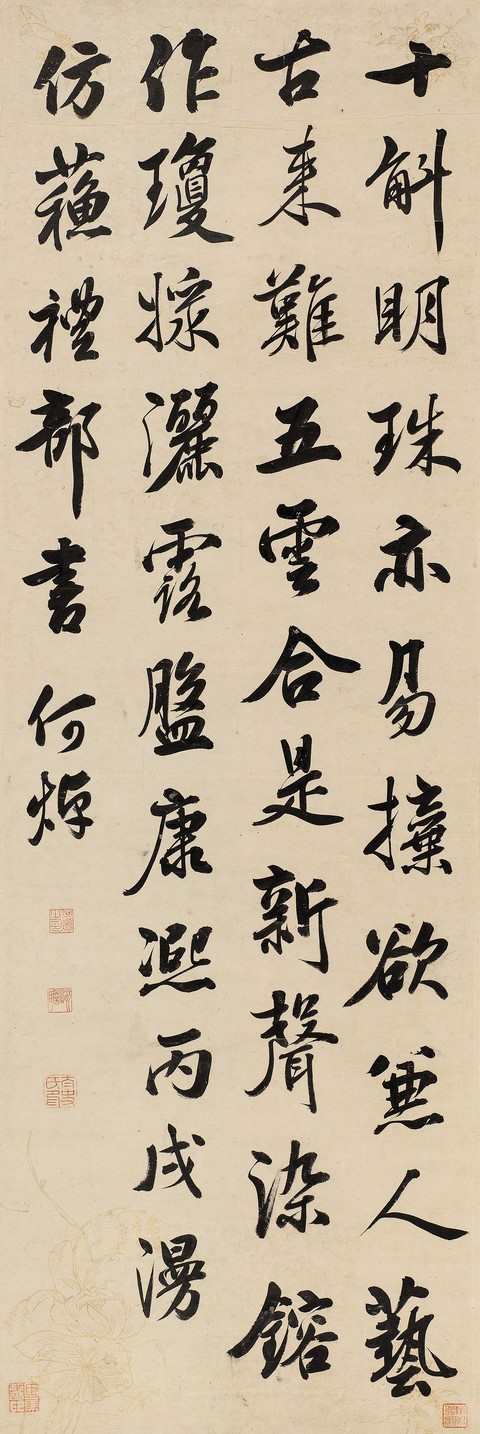 十斛明珠亦易欲兼人藝
古來難五雲合是新聲染鎔
作瓊漿灑露盤康熙丙戌漫
仿蘓禮部書何焯